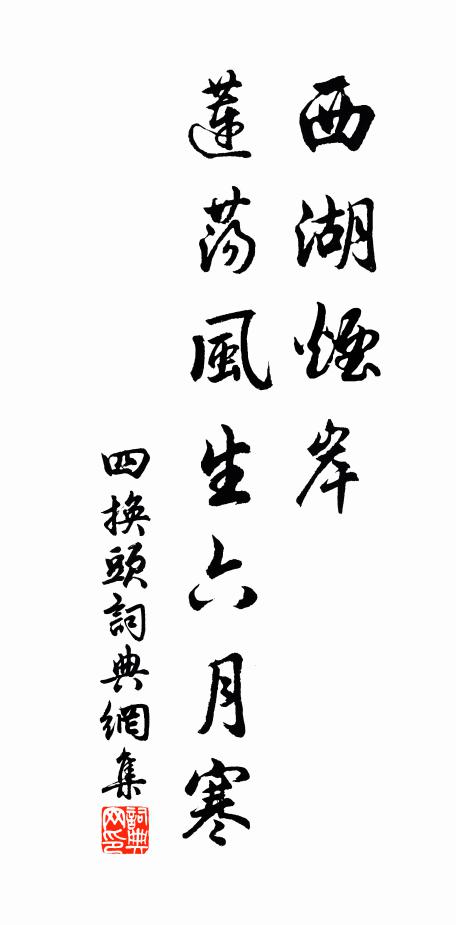 西湖煙岸
蓮蕩風生六月寒
四換頭詞典網集
詞典网印